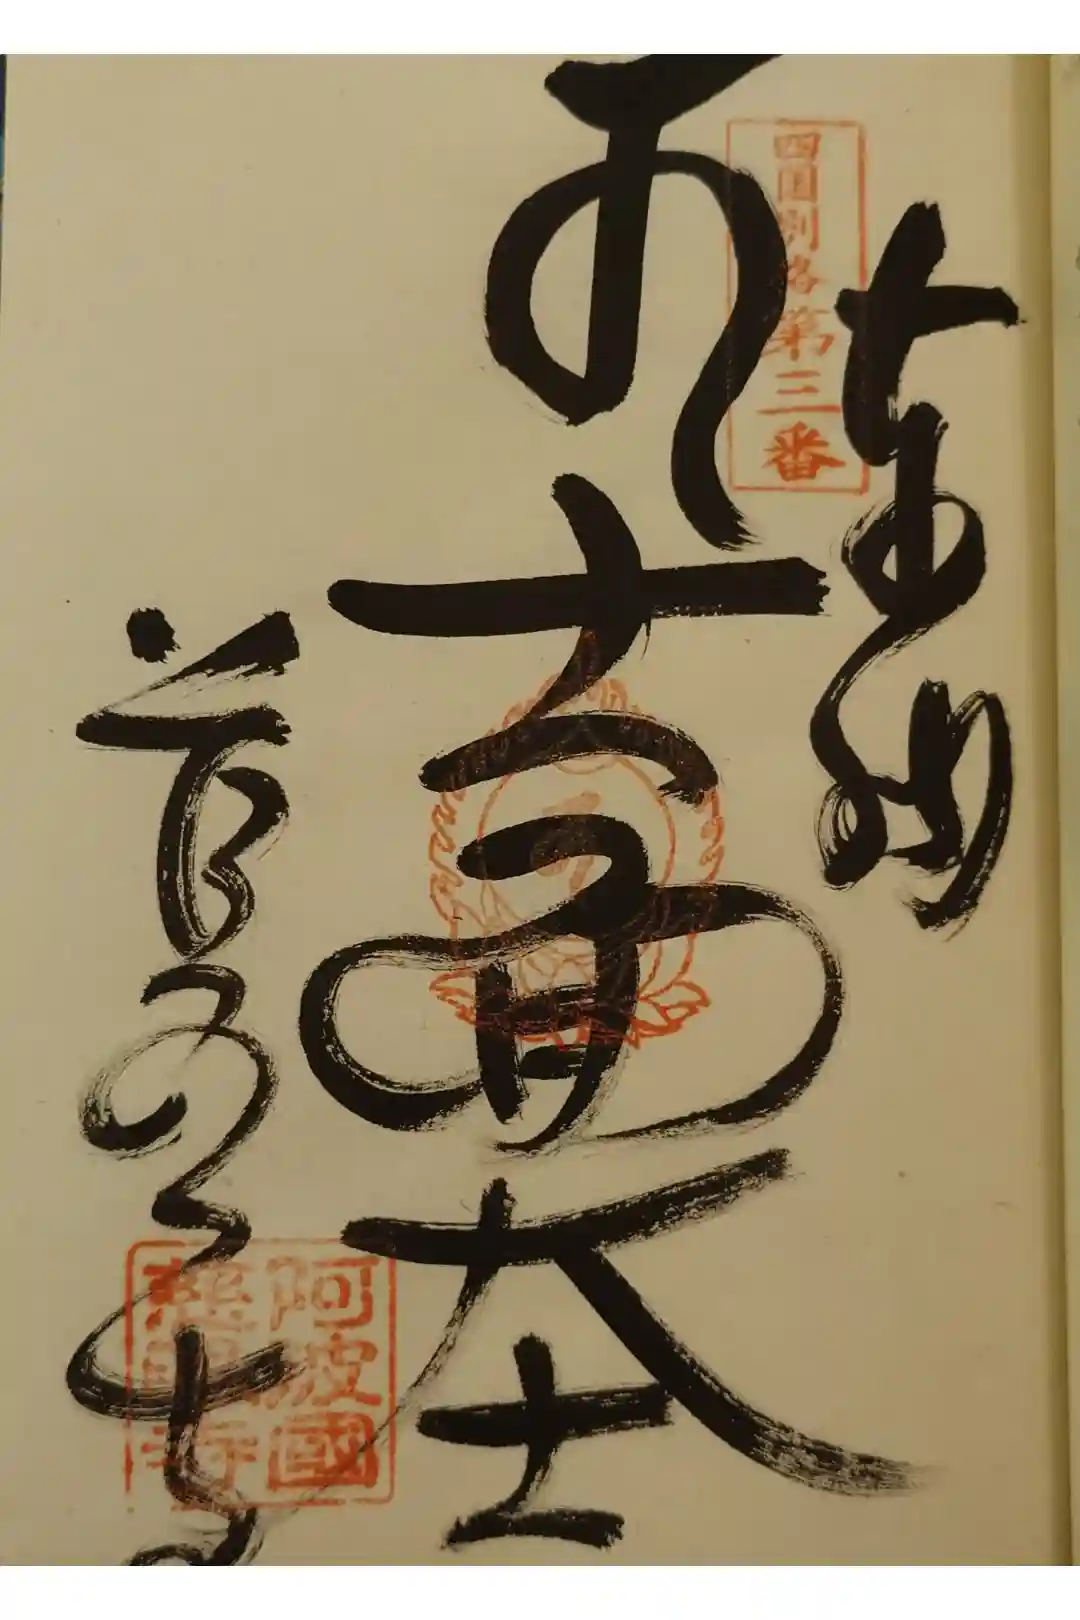 奉納
四国別格第三番
十一面大士
慈眼寺
阿波國
慈眼寺